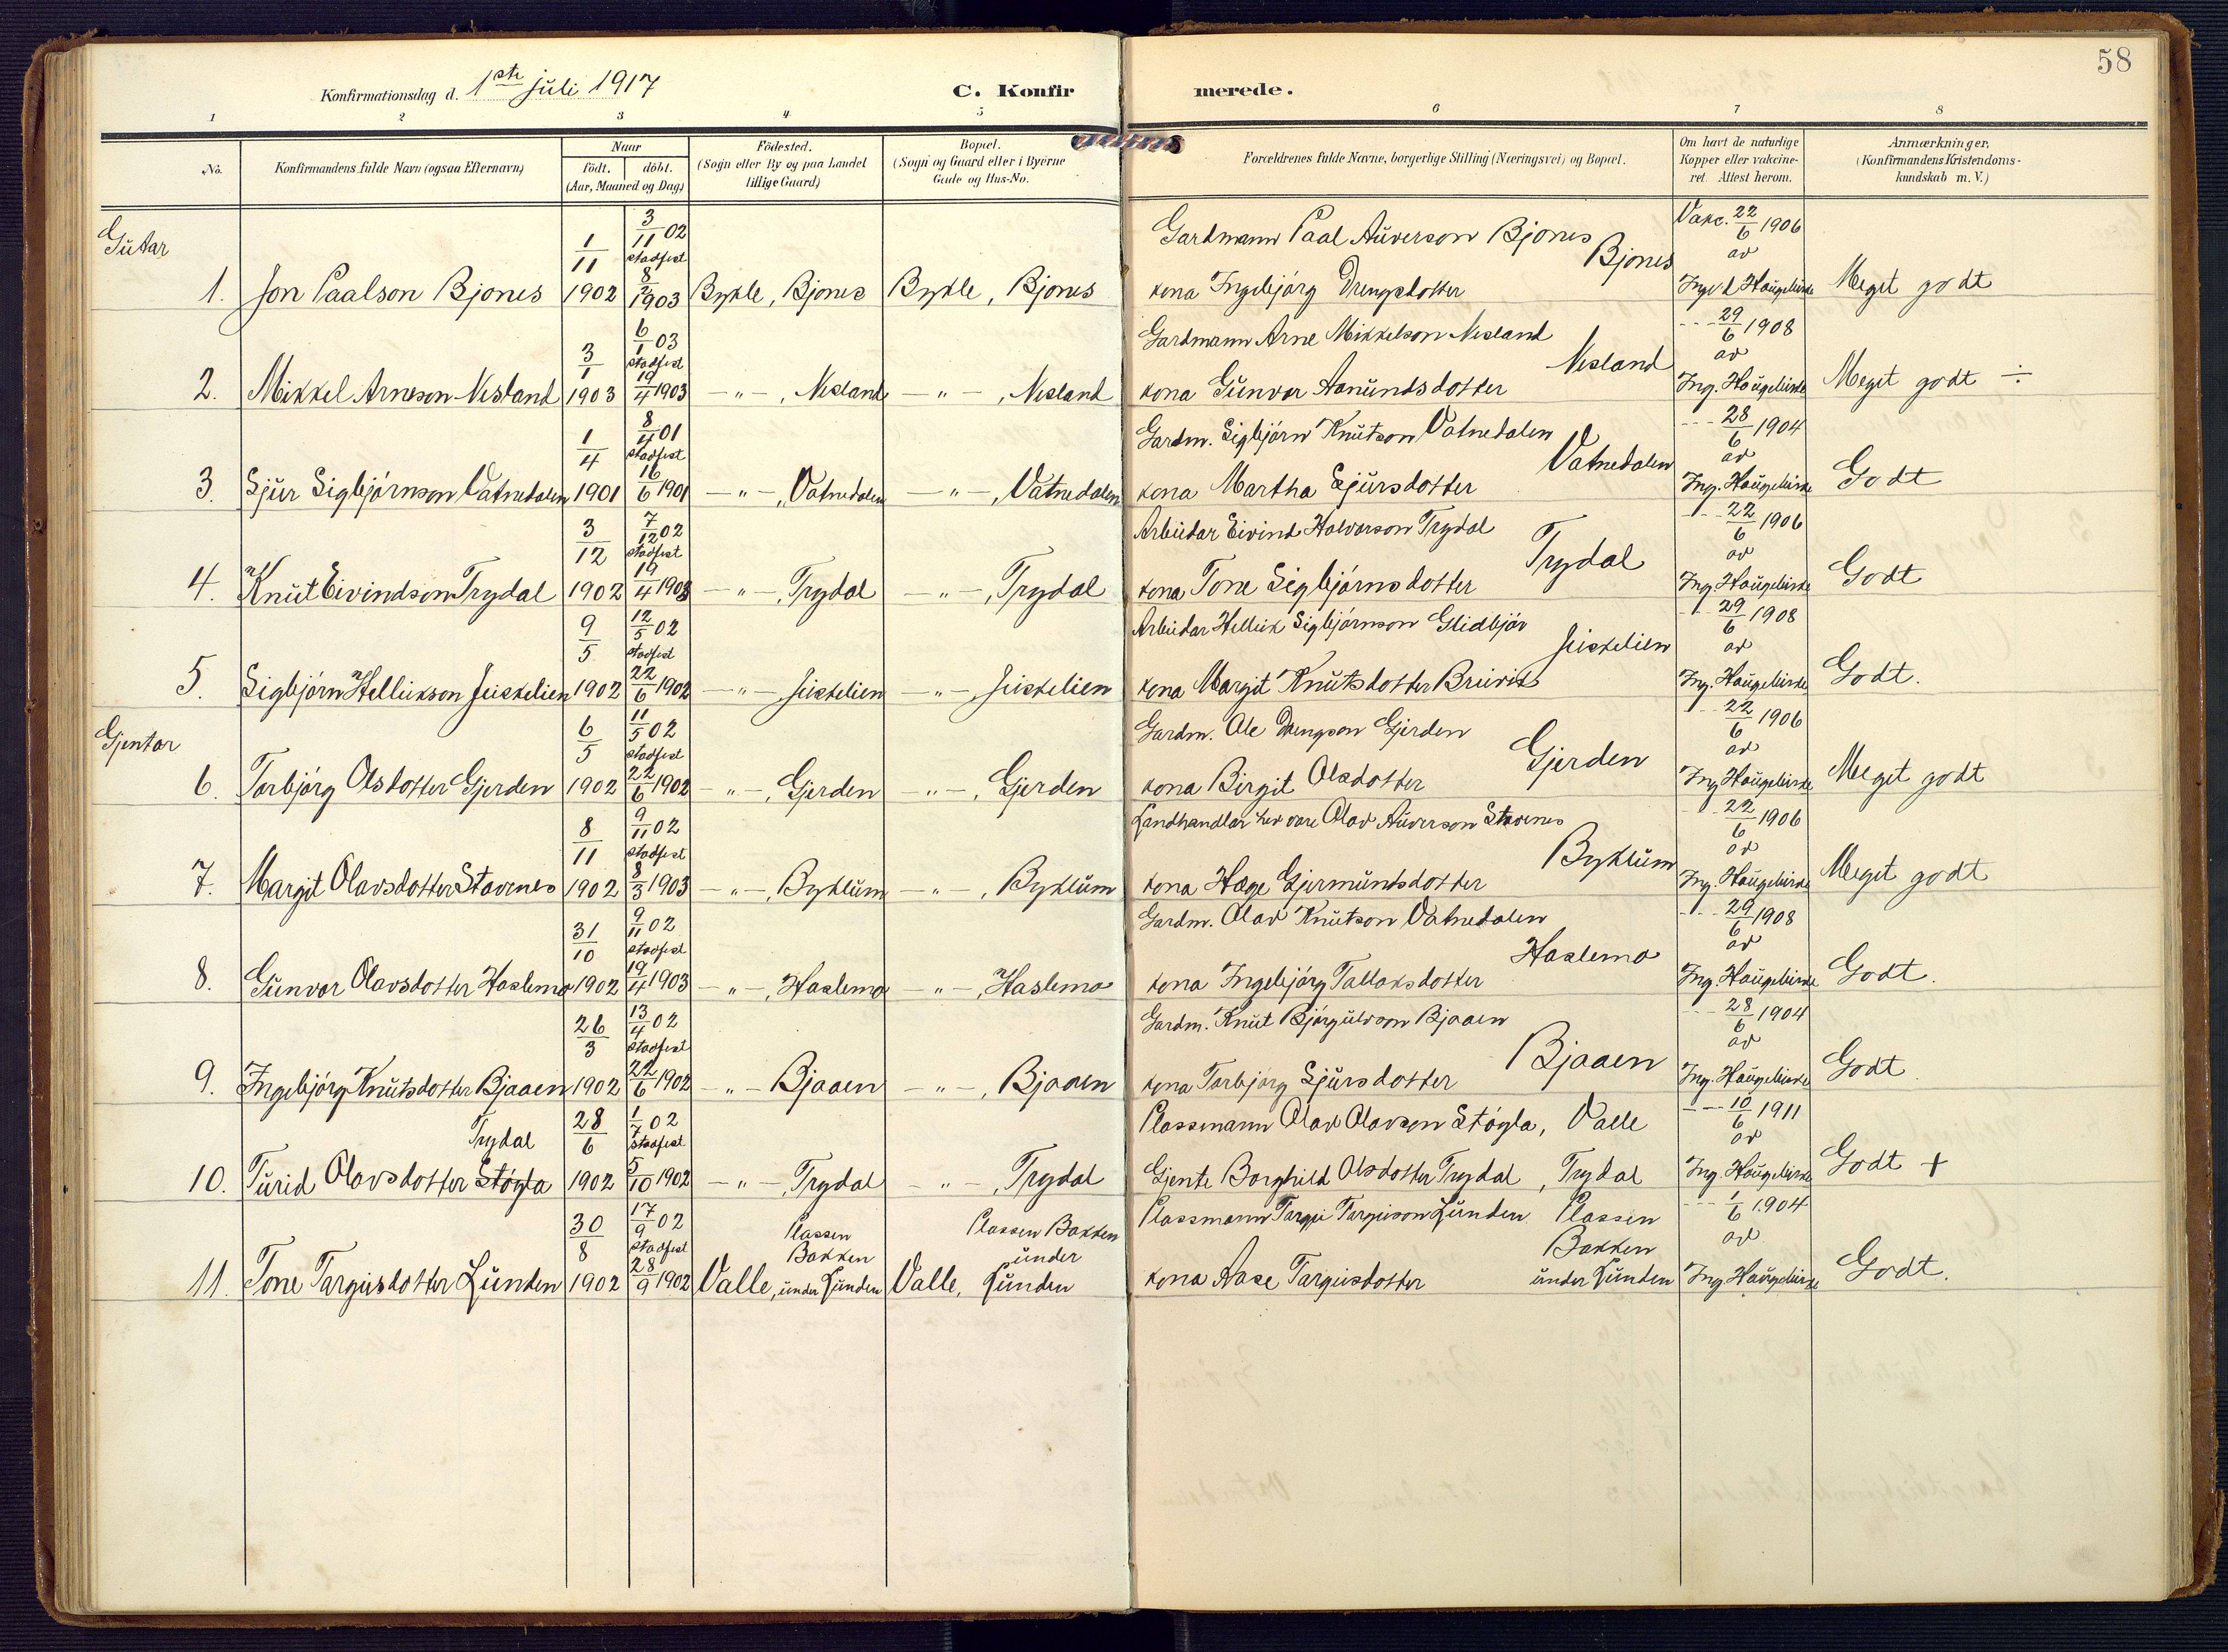 58
Konfirmationsdag d. 1ste juli 1917
C. Konfirmerede.
1 2 3 4 5 6 7 8
No. Konfirmandens fulde Navn (ogsaa Efternavn) Naar födt. döbt. (Aar, Maaned og Dag) Födested. (Sogn eller By og paa Landet tillige Gaard) Bopæl. (Sogn og Gaard eller i Byerne Gade og Hus-No. Forældrenes fulde Navne, borgerlige Stilling (Næringsvei) og Bopæl. Om havt de naturlige Kopper eller vakcineret. Attest herom. Anmærkninger. (Konfirmandens Kristendomskundskab m. V.)
Gutar
1. Jon Paalson Bjones 1/11 1902 3/11 02 stadfest 8/2 1903 Bykle, Bjones Bykle, Bjones Gardmann Paal Auverson Bjones Bjones kona Ingebjörg Drengsdotter Vakc. 22/6 1906 av Ingv.d Haugebirke Meget godt
2. Mikkel Arneson Nesland 3/1 1903 6/1 03 stadfest 19/4 1903 —"—, Nesland —"—, Nesland Gardmann Arne Mikkelson Nesland Nesland kona Gunvor Aanundsdotter --- 29/6 1908 av Ing. Haugebirke Meget godt ÷
3. Sjur Sigbjörnson Vatnedalen 1/4 1901 8/4 01 stadfest 16/6 1901 —"—, Vatnedalen —"—, Vatnedalen Gardm. Sigbjörn Knutson Vatnedalen Vatnedalen kona Martha Sjursdotter --- 28/6 1904 av Ing. Haugebirke Godt
4. Knut Eivindson Trydal 3/12 1902 7/12 02 stadfest 19/4 1903 —"—, Trydal —"—, Trydal Arbeidar Eivind Halvorson Trydal Trydal kona Tone Sigbjörnsdotter --- 22/6 1906 av Ing. Haugebirke Godt
5. Sigbjörn Helleikson Jeiskelien 9/5 1902 12/5 02 stadfest 22/6 1902 —"— Jeiskelien —"— Jeiskelien Arbeidar Helleik Sigbjörnson Glidbjör Jeiskelien kona Margit Knutsdotter Breivik --- 29/6 1908 av Ing. Haugebirke Godt.
Gjentor
6. Torbjörg Olsdotter Gjerden 6/5 1902 11/5 02 stadfest 22/6 1902 —"—, Gjerden —"—, Gjerden Gardm. Ole Drengson Gjerden Gjerden kona Birgit Olsdotter --- 22/6 1906 av Ing Haugebirke Meget godt
7. Margit Olavsdotter Stavenes 8/11 1902 9/11 02 stadfest 8/3 1903 —"—, Byklum —"—, Byklum Landhandlar Olav Auverson Stavenes Byklum kona Hæge Gjermundsdotter --- 22/6 1906 av Ing. Haugebirke Meget godt
8. Gunvor Olavsdotter Haslemo 31/10 1902 9/11 02 stadfest 19/4 1903 —"—, Haslemo —"—, Haslemo Gardm. Olav Knutson Vatnedalen Haslemo kona Ingebjörg Tallaksdotter --- 29/6 1908 av Ing. Haugebirke Godt.
9. Ingebjörg Knutsdotter Bjaaen 26/3 1902 13/4 02 stadfest 22/6 1902 —"— Bjaaen —"—, Bjaaen Gardm. Knut Björgulvson Bjaaen Bjaaen kona Torbjörg Sjursdotter --- 28/6 1904 av Ing. Haugebirke Godt
10. Turid Olavsdotter Støgla Trydal 28/6 1902 1/7 02 stadfest 5/10 1902 —"—, Trydal —"—, Trydal Plassmann Olav Olavson Støgla, Valle Gjente Borghild Olsdotter Trydal, Trydal --- 10/6 1911 av Ing. Haugebirke Godt +
11. Tone Targeisdotter Lunden 30/8 1902 17/9 02 stadfest 28/9 1902 Valle, Plassen Bakken under Lunden Valle, Plassen Bakken under Lunden Plassmann Targei Targeison Lunden Plassen Bakken under Lunden kona Aase Targeisdotter --- 1/6 1904 av Ing Haugebirke Godt.